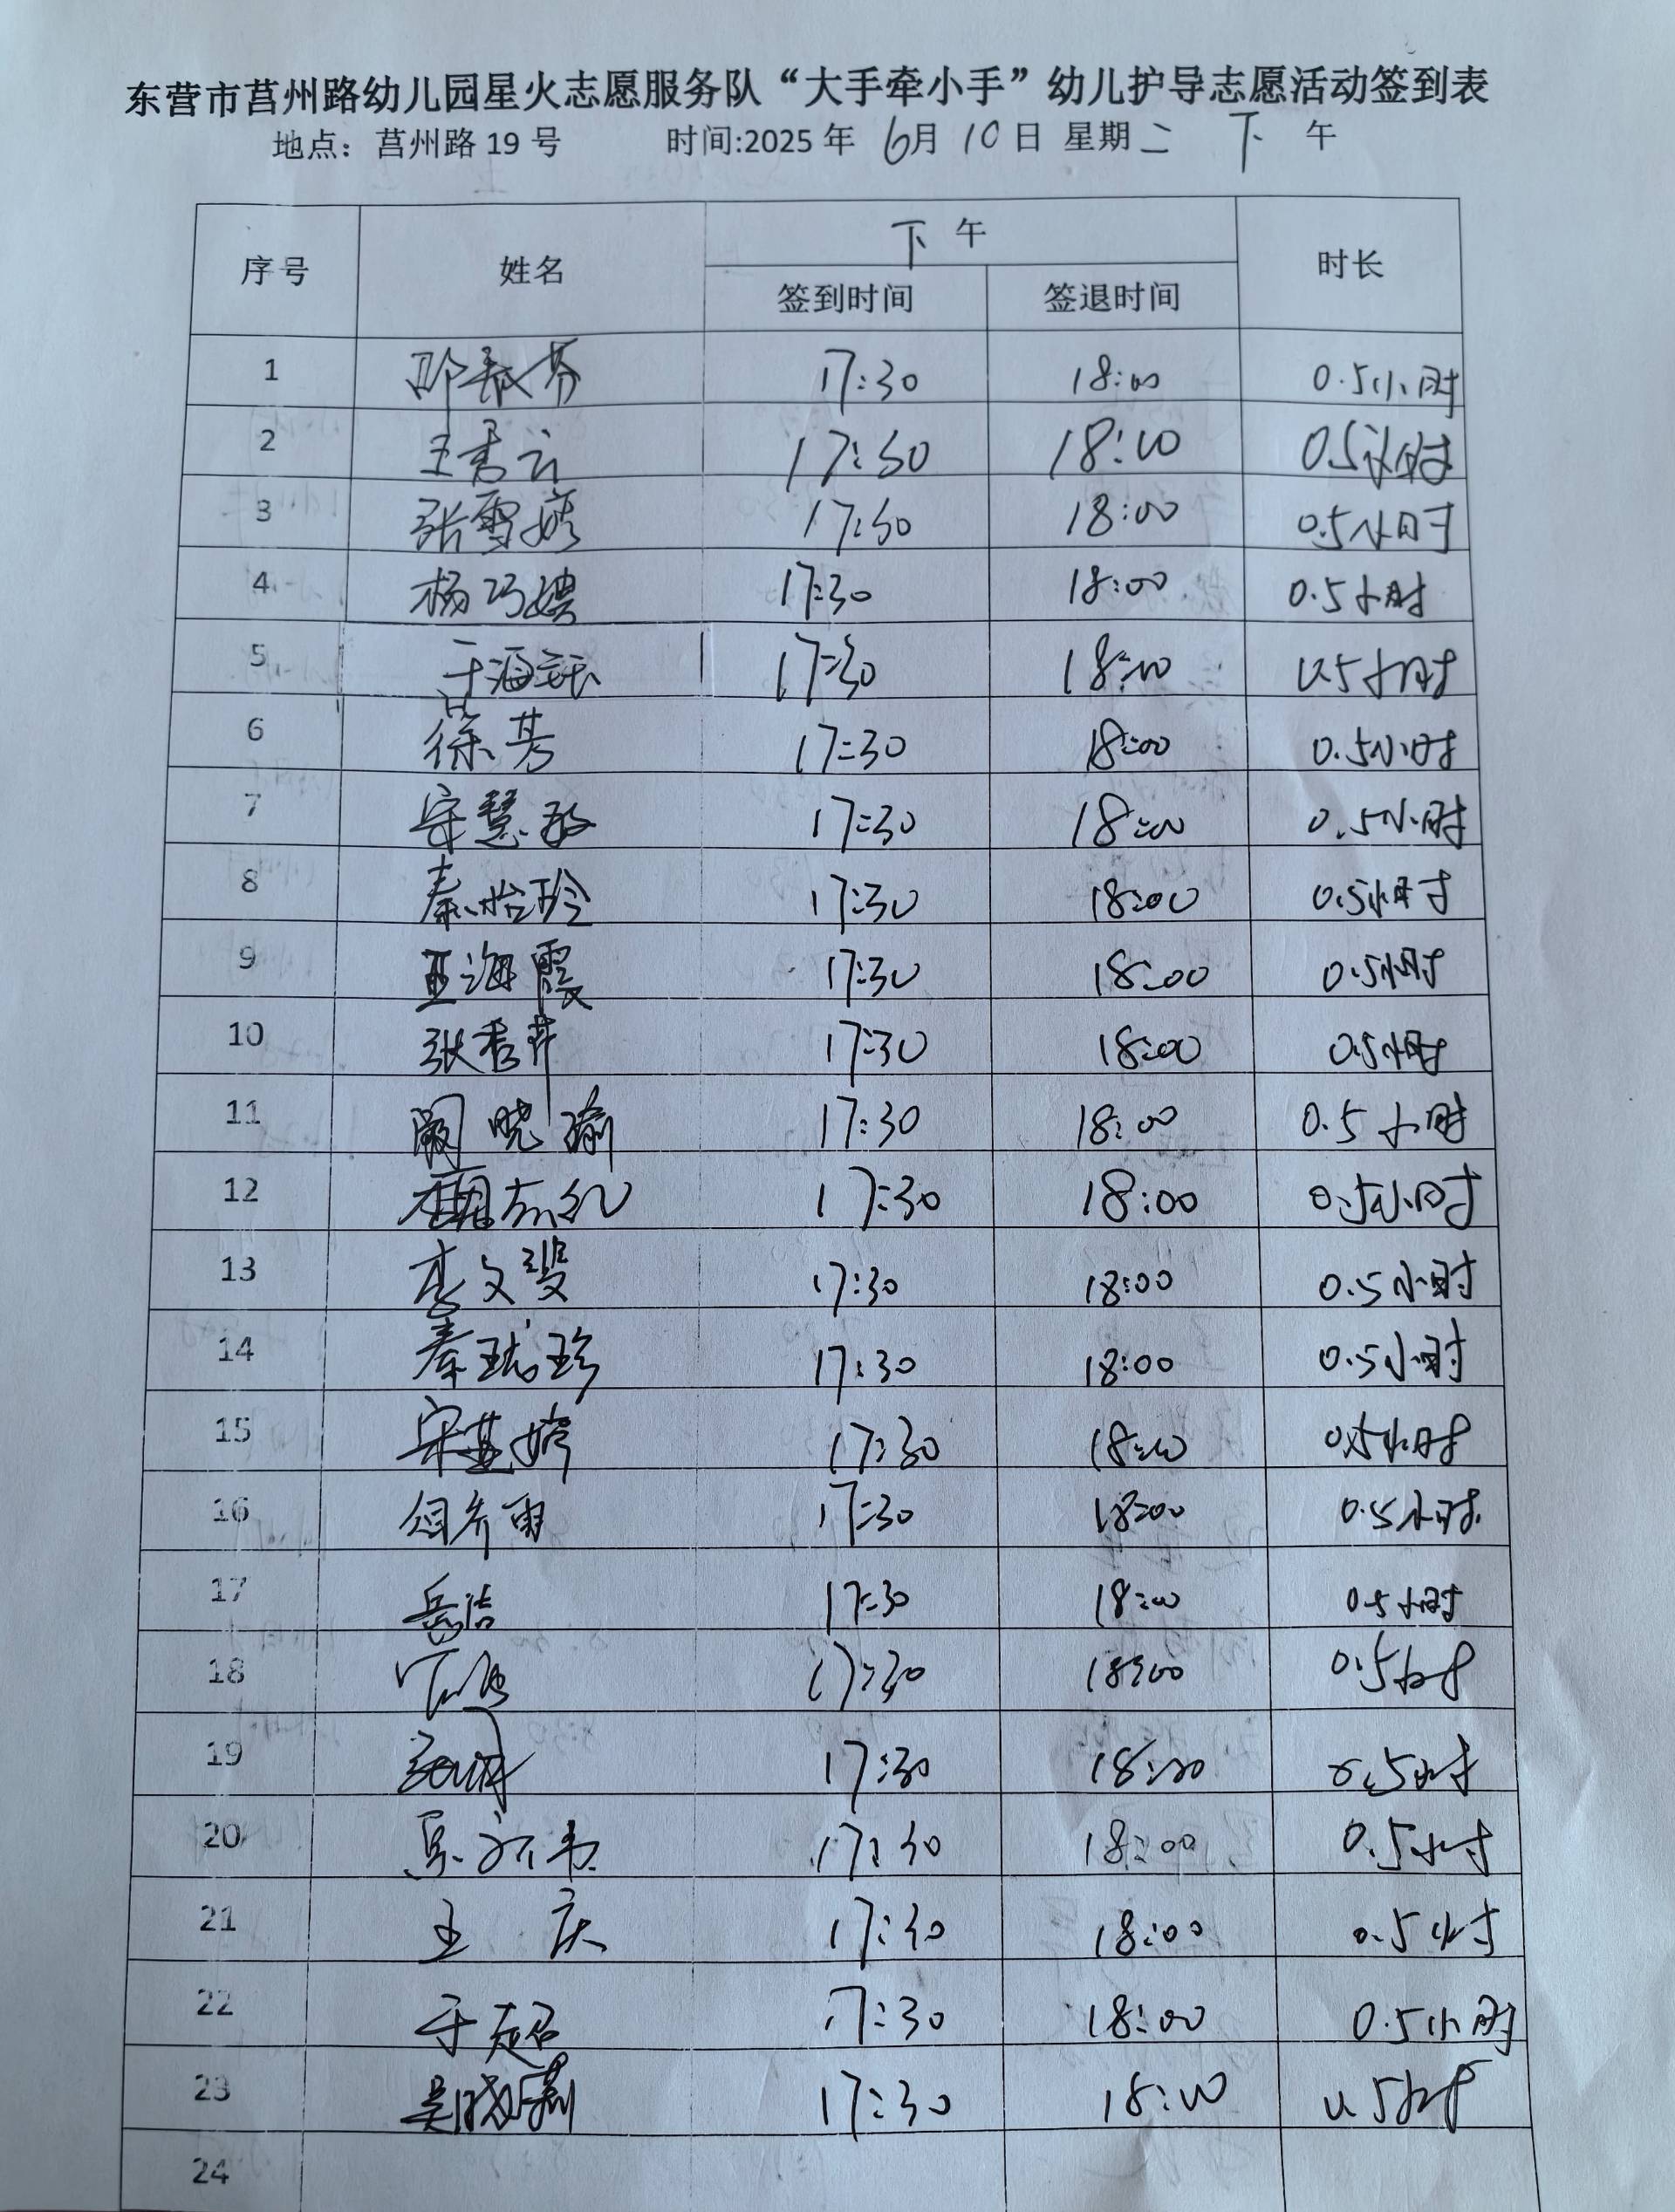 东营市莒州路幼儿园星火志愿服务队“大手牵小手”幼儿护导志愿活动签到表
地点：莒州路 19 号 时间:2025 年 6月 10 日 星期二 下 午
序号 姓名 下 午 时长
签到时间 签退时间
1 17:30 18:00 0.5小时
2 王秀云 17:30 18:00 0.5小时
3 张雪娇 17:30 18:00 0.5小时
4 杨巧娉 17:30 18:00 0.5小时
5 于海 17:30 18:00 0.5小时
6 徐芳 17:30 18:00 0.5小时
7 宋慧敏 17:30 18:00 0.5小时
8 秦怡玲 17:30 18:00 0.5小时
9 王海霞 17:30 18:00 0.5小时
10 张秀芹 17:30 18:00 0.5小时
11 阚晓瑜 17:30 18:00 0.5小时
12 17:30 18:00 0.5小时
13 李文斐 17:30 18:00 0.5小时
14 秦珑珍 17:30 18:00 0.5小时
15 宋婷 17:30 18:00 0.5小时
16 17:30 18:00 0.5小时
17 岳洁 17:30 18:00 0.5小时
18 17:30 18:00 0.5小时
19 17:30 18:00 0.5小时
20 17:30 18:00 0.5小时
21 王庆 17:30 18:00 0.5小时
22 于超 17:30 18:00 0.5小时
23 吴晓 17:30 18:00 0.5小时
24